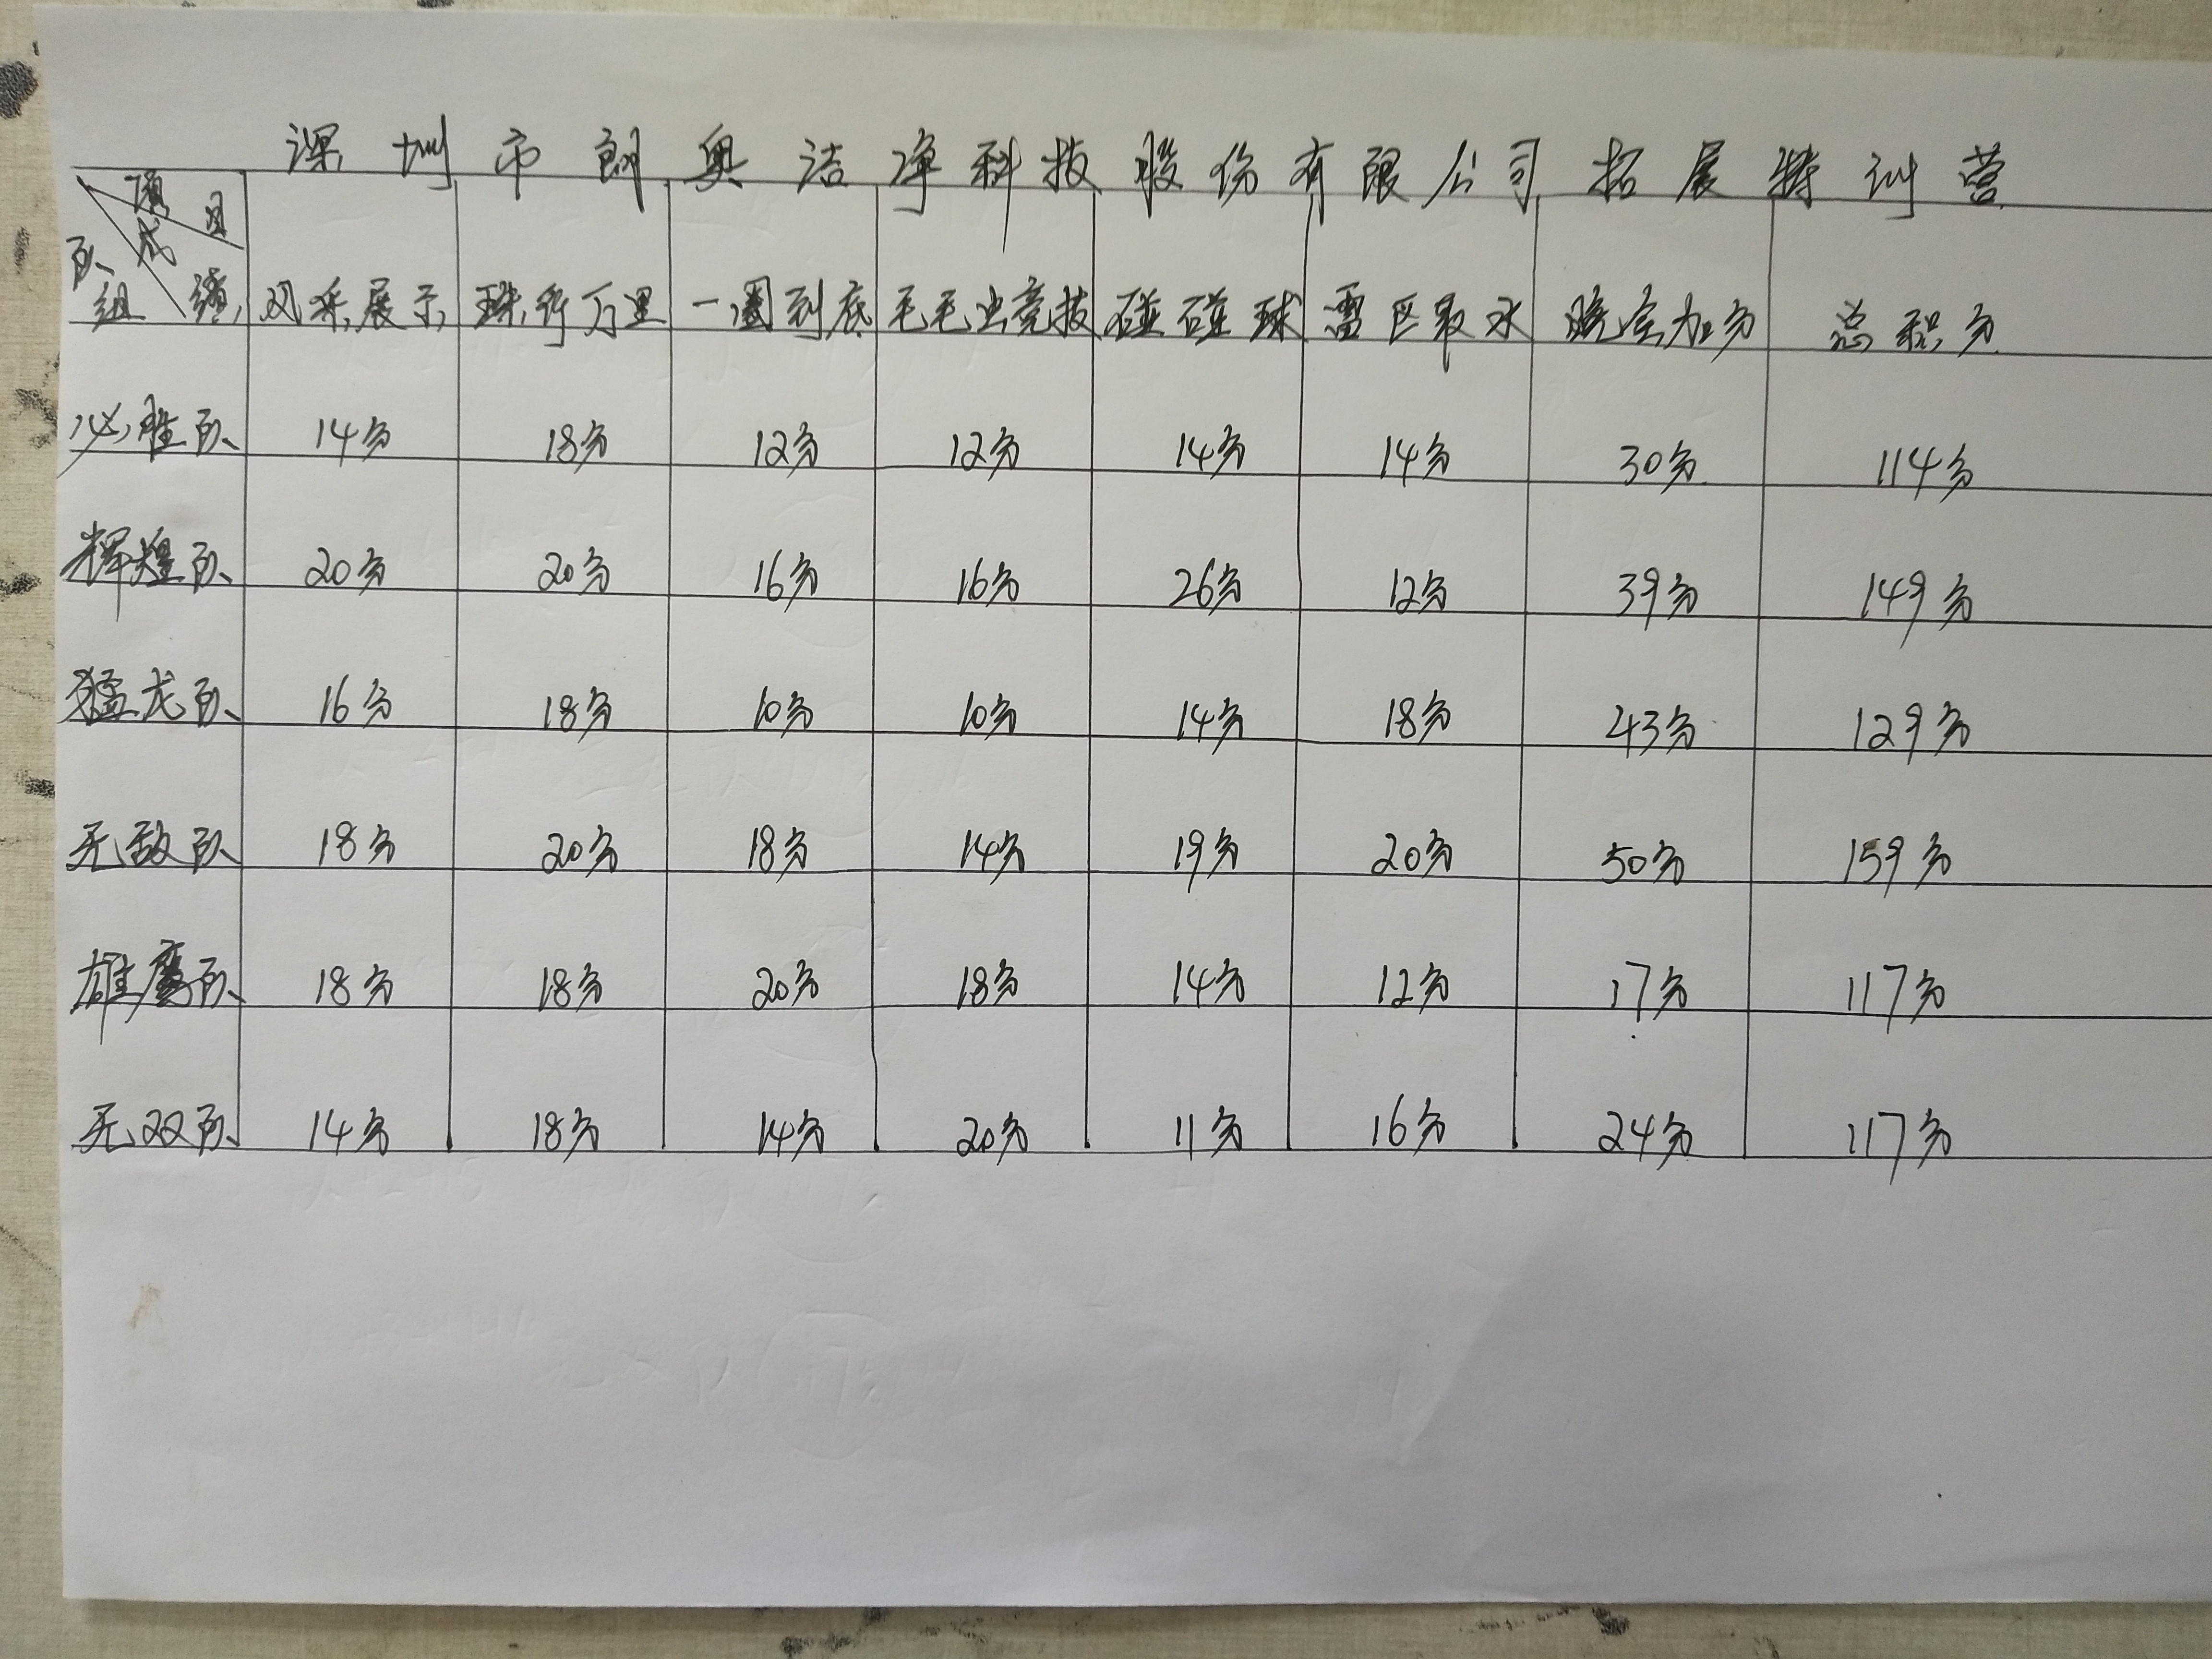 深圳市朗奥洁净科技股份有限公司拓展特训营
项目
成绩
队组
风采展示 珠行万里 一圈到底 毛毛虫竞技 碰碰球 雷区取水 晚会加分 总积分
必胜队 14分 18分 12分 12分 14分 14分 30分 114分
辉煌队 20分 20分 16分 16分 26分 12分 39分 149分
猛龙队 16分 18分 10分 10分 14分 18分 43分 129分
无敌队 18分 20分 18分 14分 19分 20分 50分 159分
雄鹰队 18分 18分 20分 18分 14分 12分 17分 117分
无双队 14分 18分 14分 20分 11分 16分 24分 117分